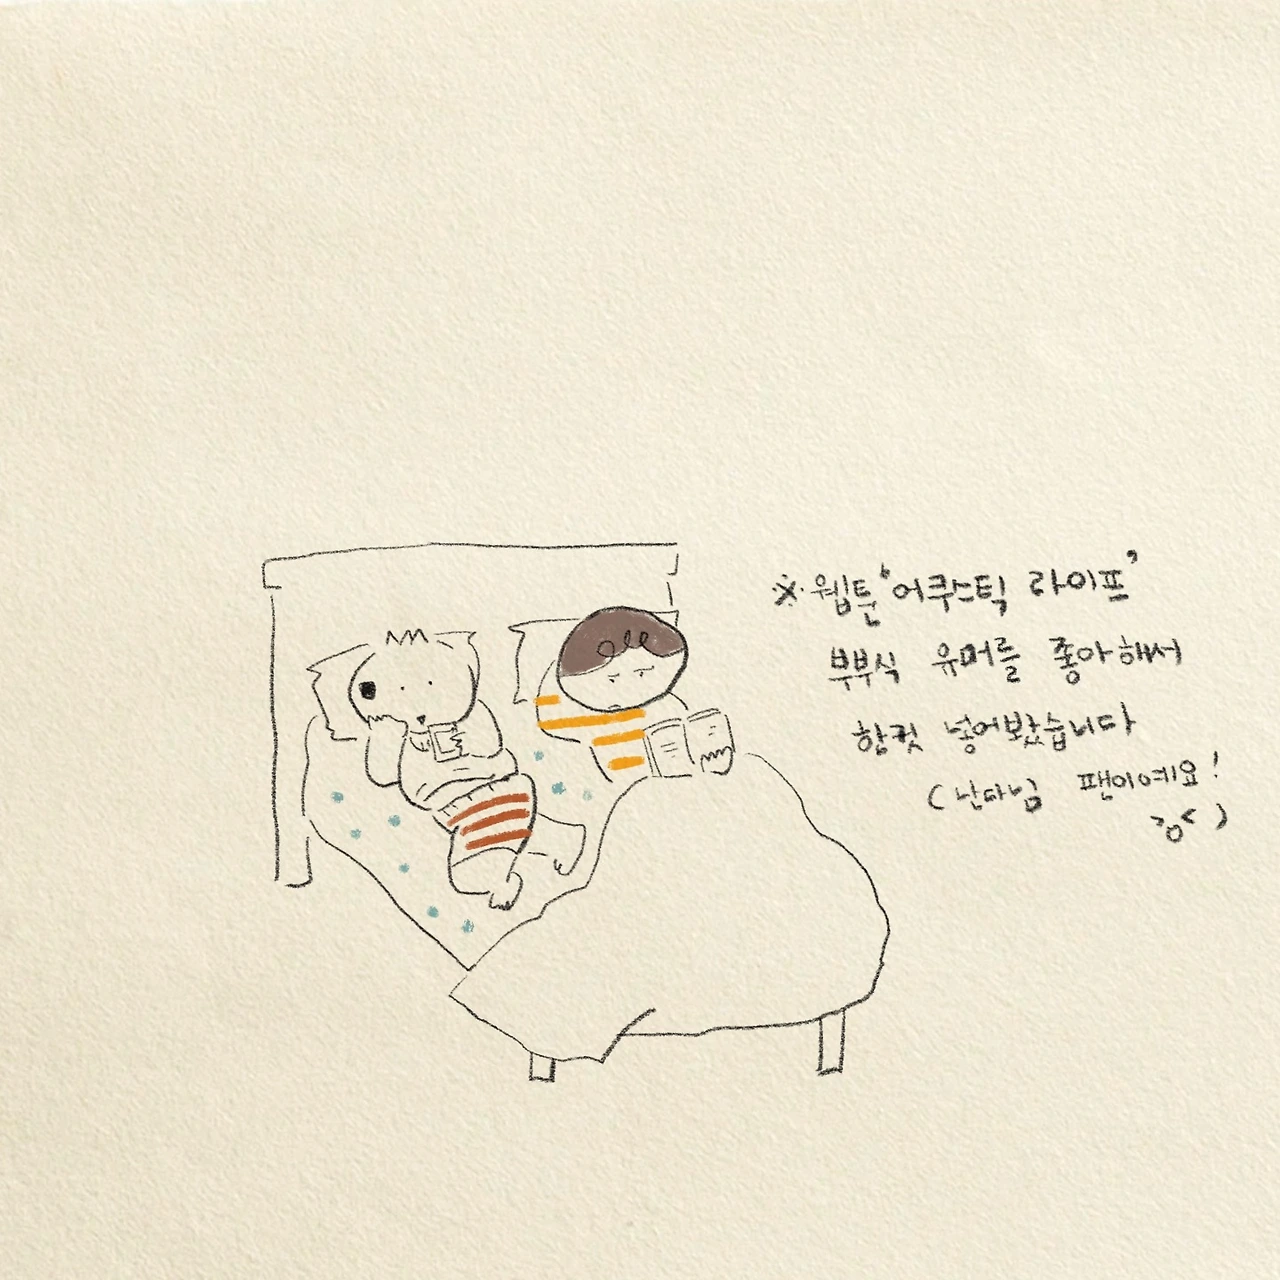 ※ 웹툰 '어쿠스틱 라이프'
부부식 유머를 좋아해서
한컷 넣어봤습니다
(난다님 팬이에요!
>o<)